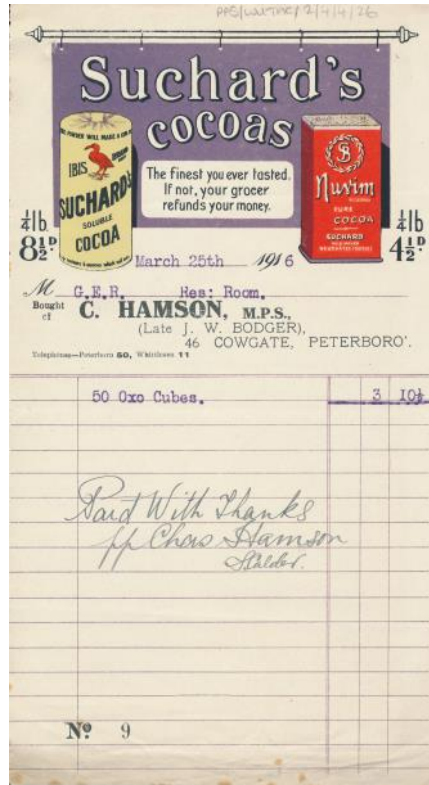 Suchard's
cocoas
IBIS
SUCHARD'S
SOLUBLE
COCOA
The finest you ever tasted.
If not, your grocer
refunds your money.
SB
Nuvim
PURE
COCOA
SUCHARD
¼lb.
8½D
¼lb
4½D
March 25th 1916
M G.E.R. Res: Room.
Bought of C. HAMSON, M.P.S.,
(Late J. W. BODGER),
46 COWGATE, PETERBORO'.
Telephones—Peterboro 50, Whittlesea 11
50 Oxo Cubes. 3 10½
Paid With Thanks
pp Chas Hamson
No 9